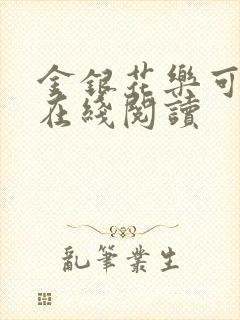 金銀花樂可
在綫閱讀
亂筆業生